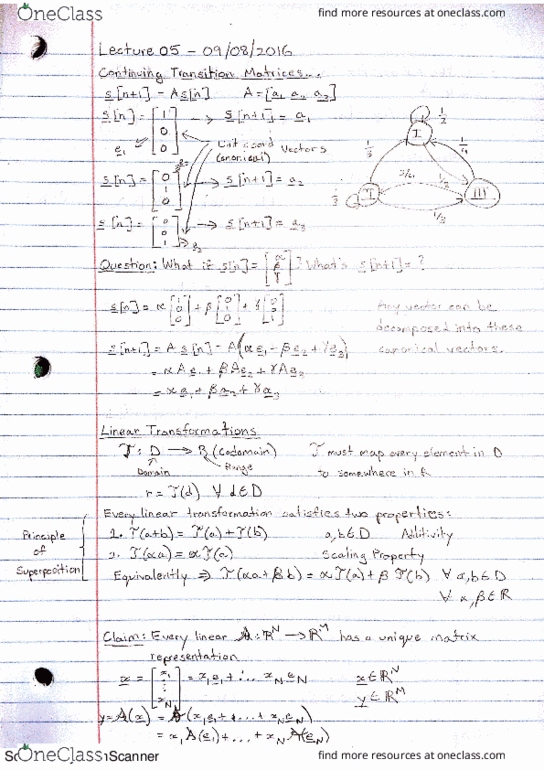 OneClass find more resources at oneclass.com
Lecture 05 - 09/08/2016
Continuing Transition Matrices...
s[n+1] = A s[n] A = [a₁ a₂ a₃]
s[n] = [1 0 0] → s[n+1] = a₁
e₁
Unit coord vectors
(canonical)
s[n] = [0 1 0] → s[n+1] = a₂
s[n] = [0 0 1] → s[n+1] = a₃
e₃
I
II
III
1/2
1/3
1/4
1/3
Question: What if s[n] = [α β γ]? What's s[n+1] = ?
s[n] = α[1 0 0] + β[0 1 0] + γ[0 0 1]
Any vector can be
decomposed into these
canonical vectors.
s[n+1] = A s[n] = A(α e₁ + β e₂ + γ e₃)
= α A e₁ + β A e₂ + γ A e₃
= α a₁ + β a₂ + γ a₃
Linear Transformations
T: D → R (codomain) T must map every element in D
Domain Range to somewhere in R
r = T(d) ∀ d ∈ D
Every linear transformation satisfies two properties:
Principle of Superposition
1. T(a+b) = T(a) + T(b) a,b ∈ D Additivity
2. T(αa) = α T(a) Scaling Property
Equivalently ⇒ T(αa + βb) = α T(a) + β T(b) ∀ a,b ∈ D
∀ α,β ∈ R
Claim: Every linear A: ℝᴺ → ℝᴹ has a unique matrix
representation
x = [x₁ ⋮ x_N] = x₁e₁ + ... x_N e_N x ∈ ℝᴺ
y ∈ ℝᴹ
y = A(x) = A(x₁e₁ + ... + x_N e_N)
= x₁ A(e₁) + ... + x_N A(e_N)
OneClass Scanner find more resources at oneclass.com